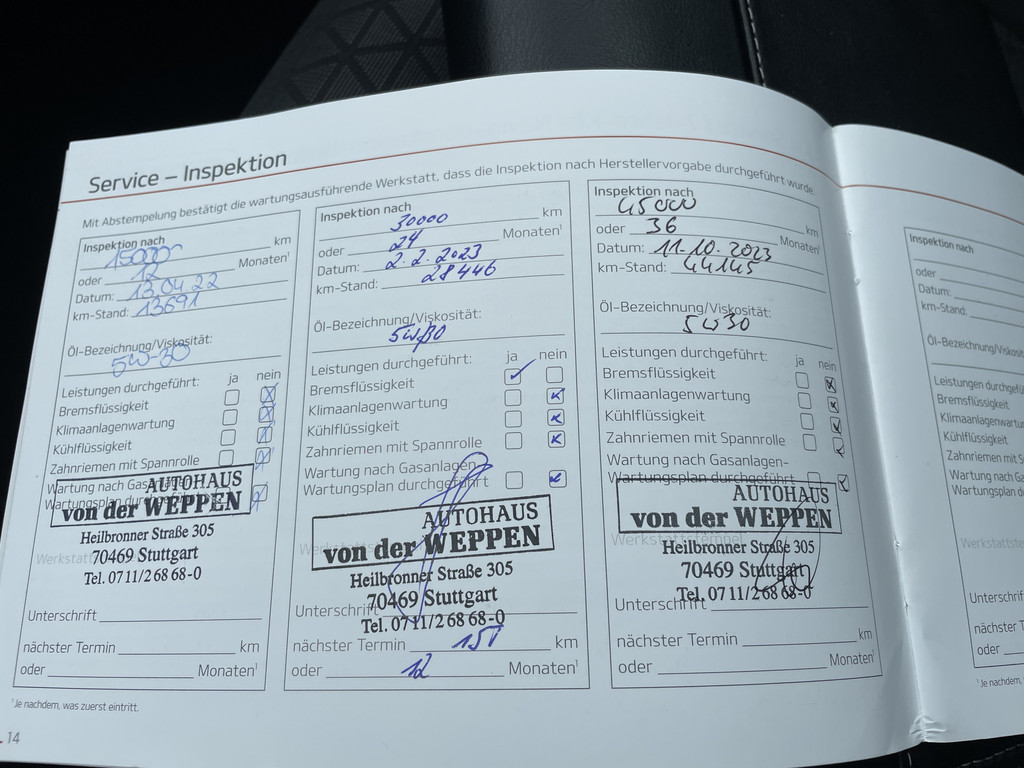 Service – Inspektion
Mit Abstempelung bestätigt die wartungsausführende Werkstatt, dass die Inspektion nach Herstellervorgabe durchgeführt wurde.
Inspektion nach
15000 km
oder 12 Monaten¹
Datum: 13.04.22
km-Stand: 13691
Öl-Bezeichnung/Viskosität:
5W-30
Leistungen durchgeführt: ja nein
Bremsflüssigkeit
Klimaanlagenwartung
Kühlflüssigkeit
Zahnriemen mit Spannrolle
Wartung nach Gasanlagen-
Wartungsplan durchgeführt
AUTOHAUS
von der WEPPEN
Heilbronner Straße 305
70469 Stuttgart
Tel. 0711/2 68 68-0
Unterschrift
nächster Termin km
oder Monaten¹
Inspektion nach
30000 km
oder 24 Monaten¹
Datum: 2.2.2023
km-Stand: 28446
Öl-Bezeichnung/Viskosität:
5W30
Leistungen durchgeführt: ja nein
Bremsflüssigkeit
Klimaanlagenwartung
Kühlflüssigkeit
Zahnriemen mit Spannrolle
Wartung nach Gasanlagen-
Wartungsplan durchgeführt
AUTOHAUS
von der WEPPEN
Heilbronner Straße 305
70469 Stuttgart
Unterschrift
Tel. 0711/2 68 68-0
nächster Termin km
oder 12 Monaten¹
Inspektion nach
45000 km
oder 36 Monaten¹
Datum: 11.10.2023
km-Stand: 44145
Öl-Bezeichnung/Viskosität:
5W30
Leistungen durchgeführt: ja nein
Bremsflüssigkeit
Klimaanlagenwartung
Kühlflüssigkeit
Zahnriemen mit Spannrolle
Wartung nach Gasanlagen-
Wartungsplan durchgeführt
AUTOHAUS
von der WEPPEN
Werkstattstempel
Heilbronner Straße 305
70469 Stuttgart
Tel. 0711/2 68 68-0
Unterschrift
nächster Termin km
oder Monaten¹
¹Je nachdem, was zuerst eintritt.
14
Inspektion nach
oder
Datum:
km-Stand:
Leistungen
Bremsflüssigkeit
Klimaanlagenwartung
Kühlflüssigkeit
Zahnriemen mit
Wartung nach
Wartungsplan
nächster
oder
¹Je nachdem,